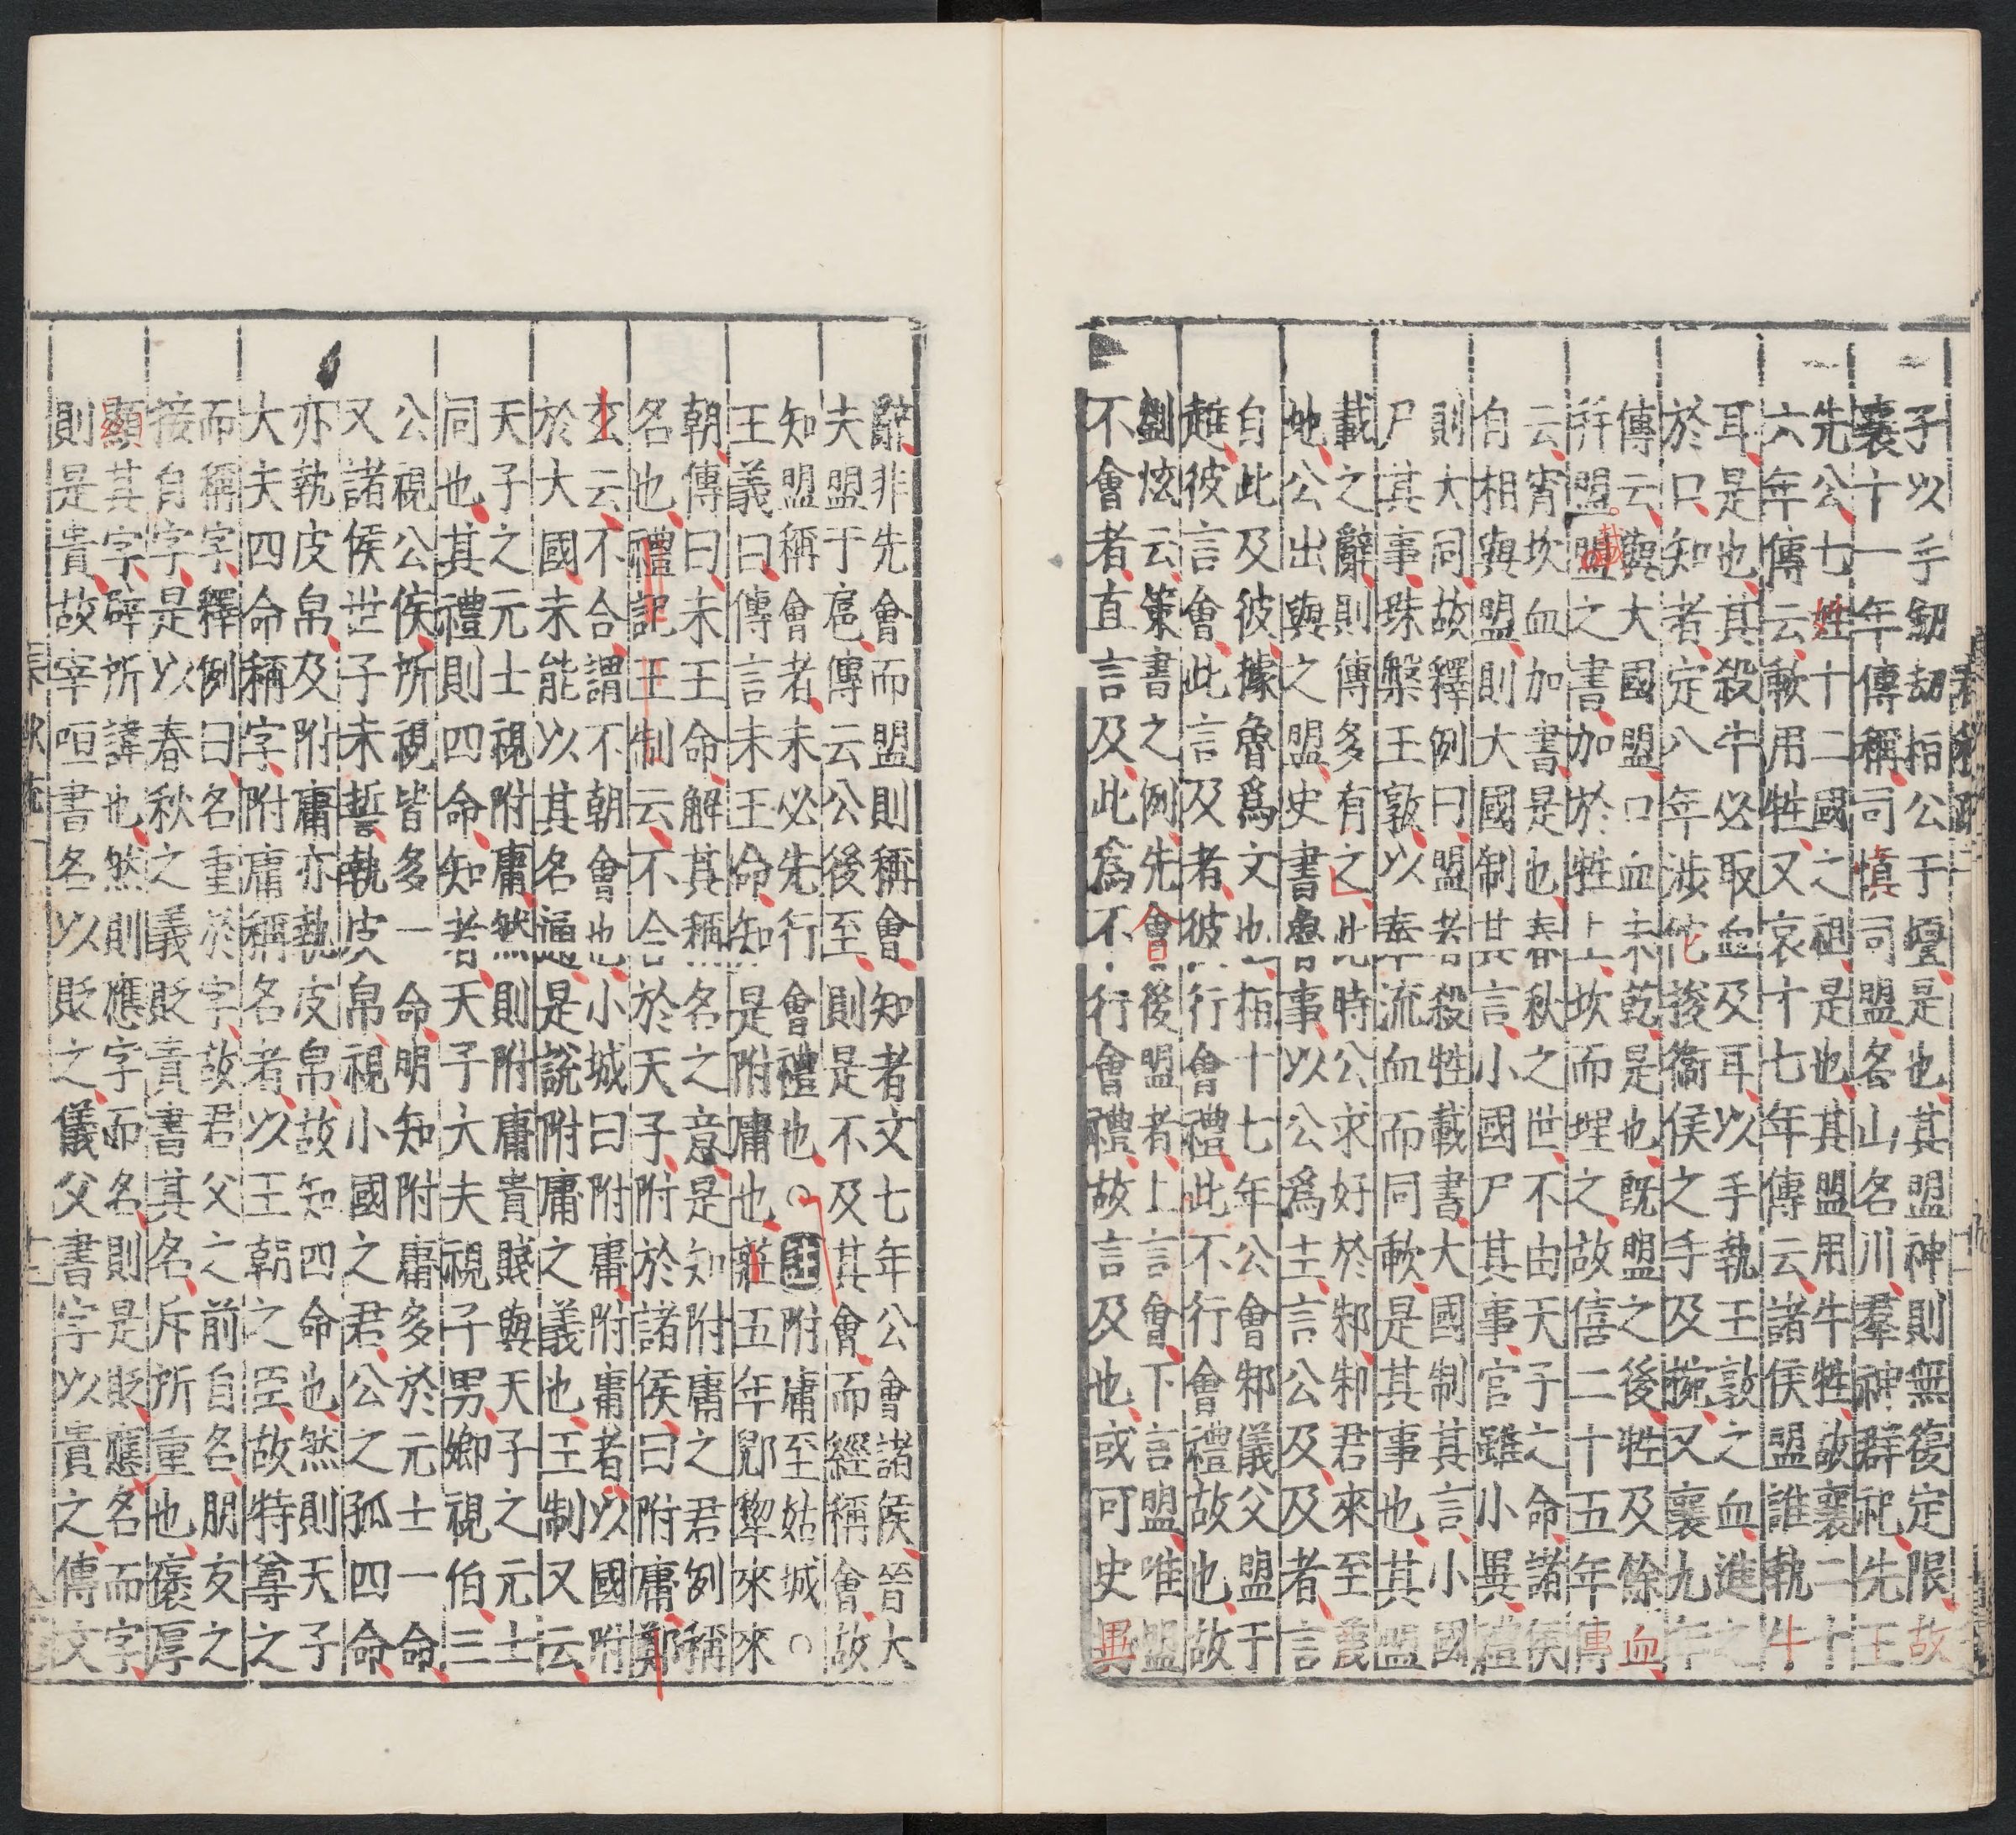 子以手劒劫桓公于壇是也其盟神則無復定限故
襄十一年傳稱司慎司盟名山名川羣神群祀先王
先公七姓十二國之祖是也其盟用牛牲故襄二十
六年傳云歃用牲又哀十七年傳云諸侯盟誰執牛
耳是也其殺牛必取血及耳以手執玉敦之血進之
於口知者定八年涉佗捘衛侯之手及捥又襄九年
傳云與大國盟口血未乾是也既盟之後牲及餘血
并盟盟之書加於牲上坎而埋之故僖二十五年傳
云宵坎血加書是也春秋之世不由天子之命諸侯
自相與盟則大國制其言小國尸其事官雖小異禮
則大同故釋例曰盟者殺牲載書大國制其言小國
尸其事珠槃王敦以奉流血而同歃是其事也其盟
載之辭則傳多有之此時公求好於邾邾君來至蔑
地公出與之盟史書魯事以公爲主言公及及者言
自此及彼據魯爲文也桓十七年公會邾儀父盟于
趡彼言會此言及者彼行會禮此不行會禮故也故
劉炫云策書之例先會後盟者上言會下言盟唯盟
不會者直言及此爲不行會禮故言及也或可史異
辭非先會而盟則稱會知者文七年公會諸侯晉大
夫盟于扈傳云公後至則是不及其會而經稱會故
知盟稱會者未必先行會禮也○注附庸至姑城○
王義曰傳言未王命知是附庸也莊五年郳犂來來
朝傳曰未王命解其稱名之意是知附庸之君例稱
名也禮記王制云不合於天子附於諸侯曰附庸鄭
玄云不合謂不朝會也小城曰附庸附庸者以國附
於大國未能以其名通是說附庸之義也王制又云
天子之元士視附庸然則附庸貴賤與天子之元士
同也其禮則四命知者天子大夫視子男卿視伯三
公視公侯所視皆多一命明知附庸多於元士一命
又諸侯世子未誓執皮帛視小國之君公之孤四命
亦執皮帛及附庸亦執皮帛故知四命也然則天子
大夫四命稱字附庸稱名者以王朝之臣故特尊之
而稱字釋例曰名重於字故君父之前自名朋友之
接自字是以春秋之義貶責書其名斥所重也褒厚
顯其字辟所諱也然則應字而名則是貶應名而字
則是貴故宰咺書名以貶之儀父書字以貴之傳文